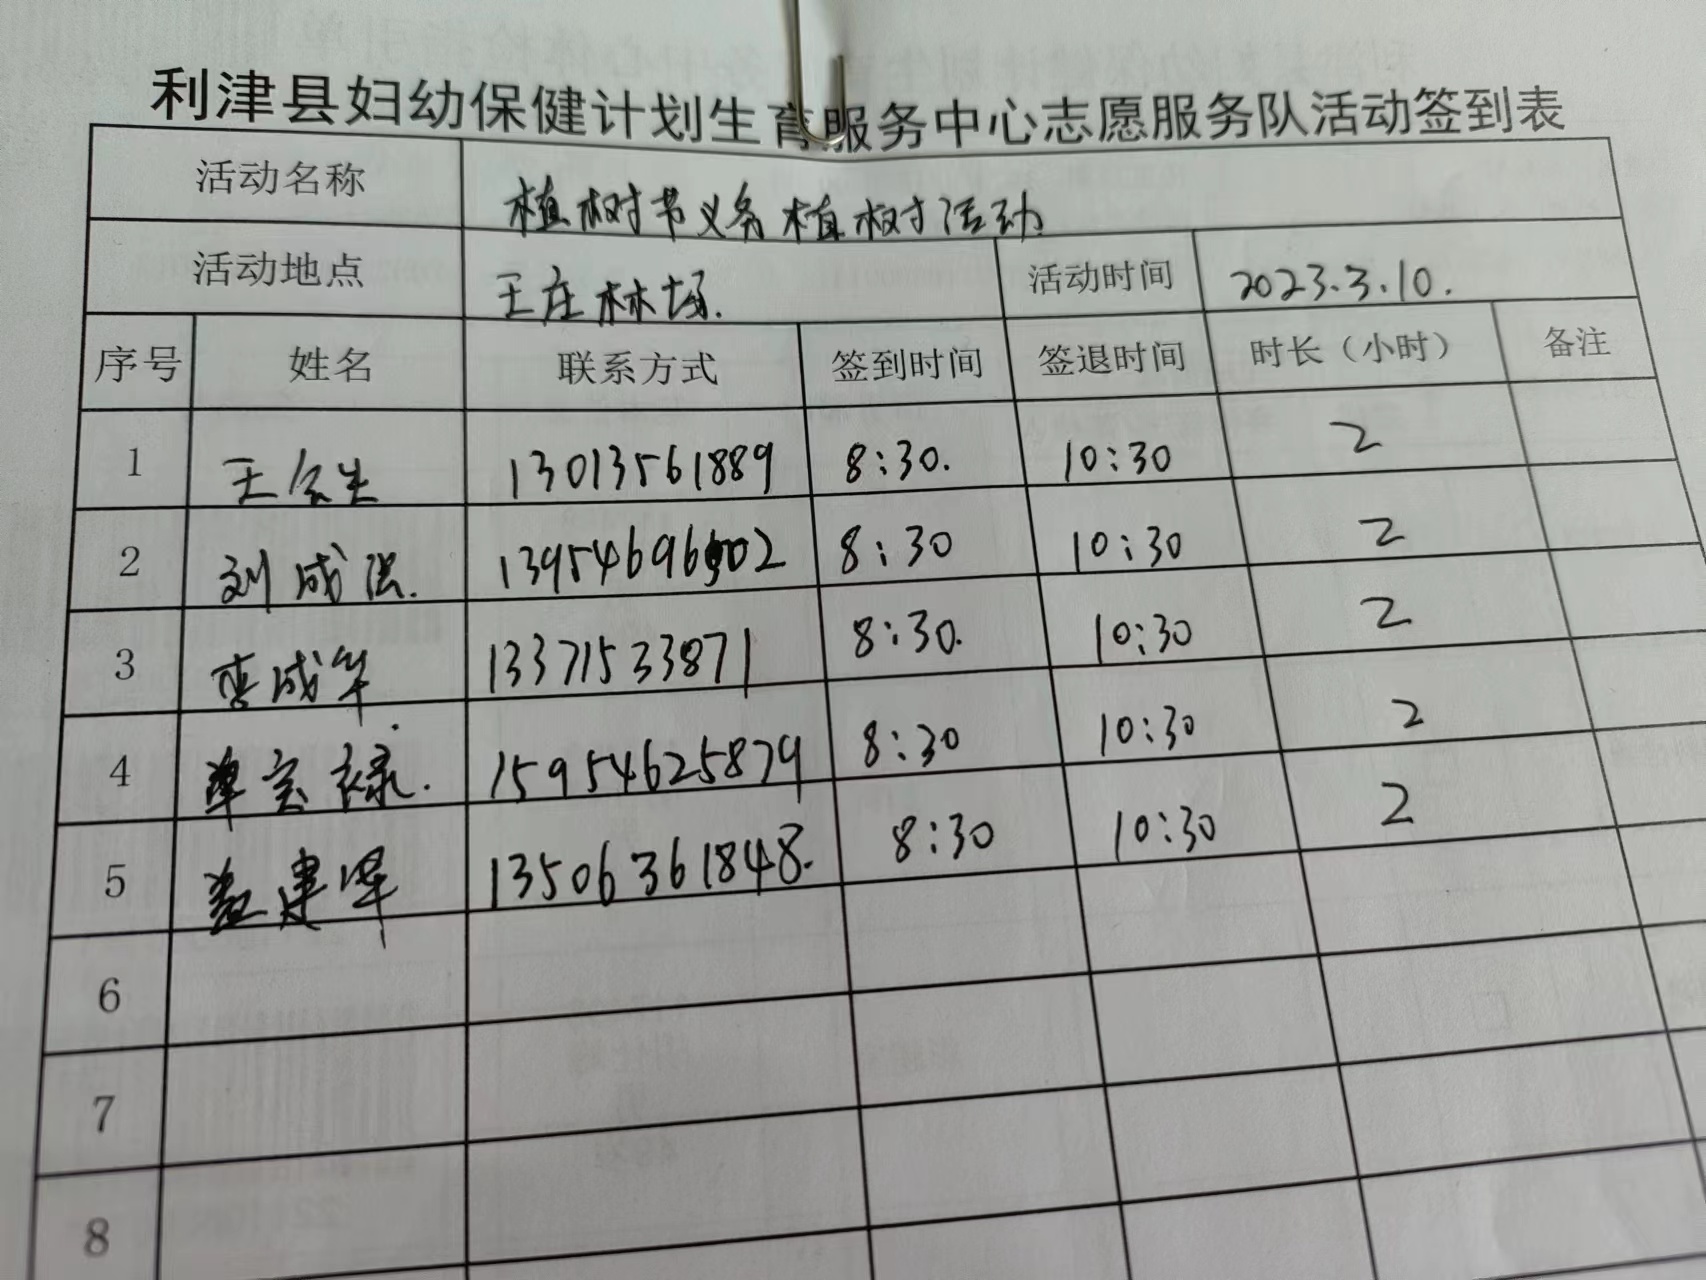 利津县妇幼保健计划生育服务中心志愿服务队活动签到表
活动名称 植树节义务植树活动
活动地点 王庄林场. 活动时间 2023.3.10.
序号 姓名 联系方式 签到时间 签退时间 时长（小时） 备注
1 王会生 13013561889 8:30. 10:30 2
2 刘成强. 13954696602 8:30 10:30 2
3 李成华 13371533871 8:30. 10:30 2
4 单宝禄. 15954625879 8:30 10:30 2
5 孟建军 13506361848. 8:30 10:30 2
6
7
8